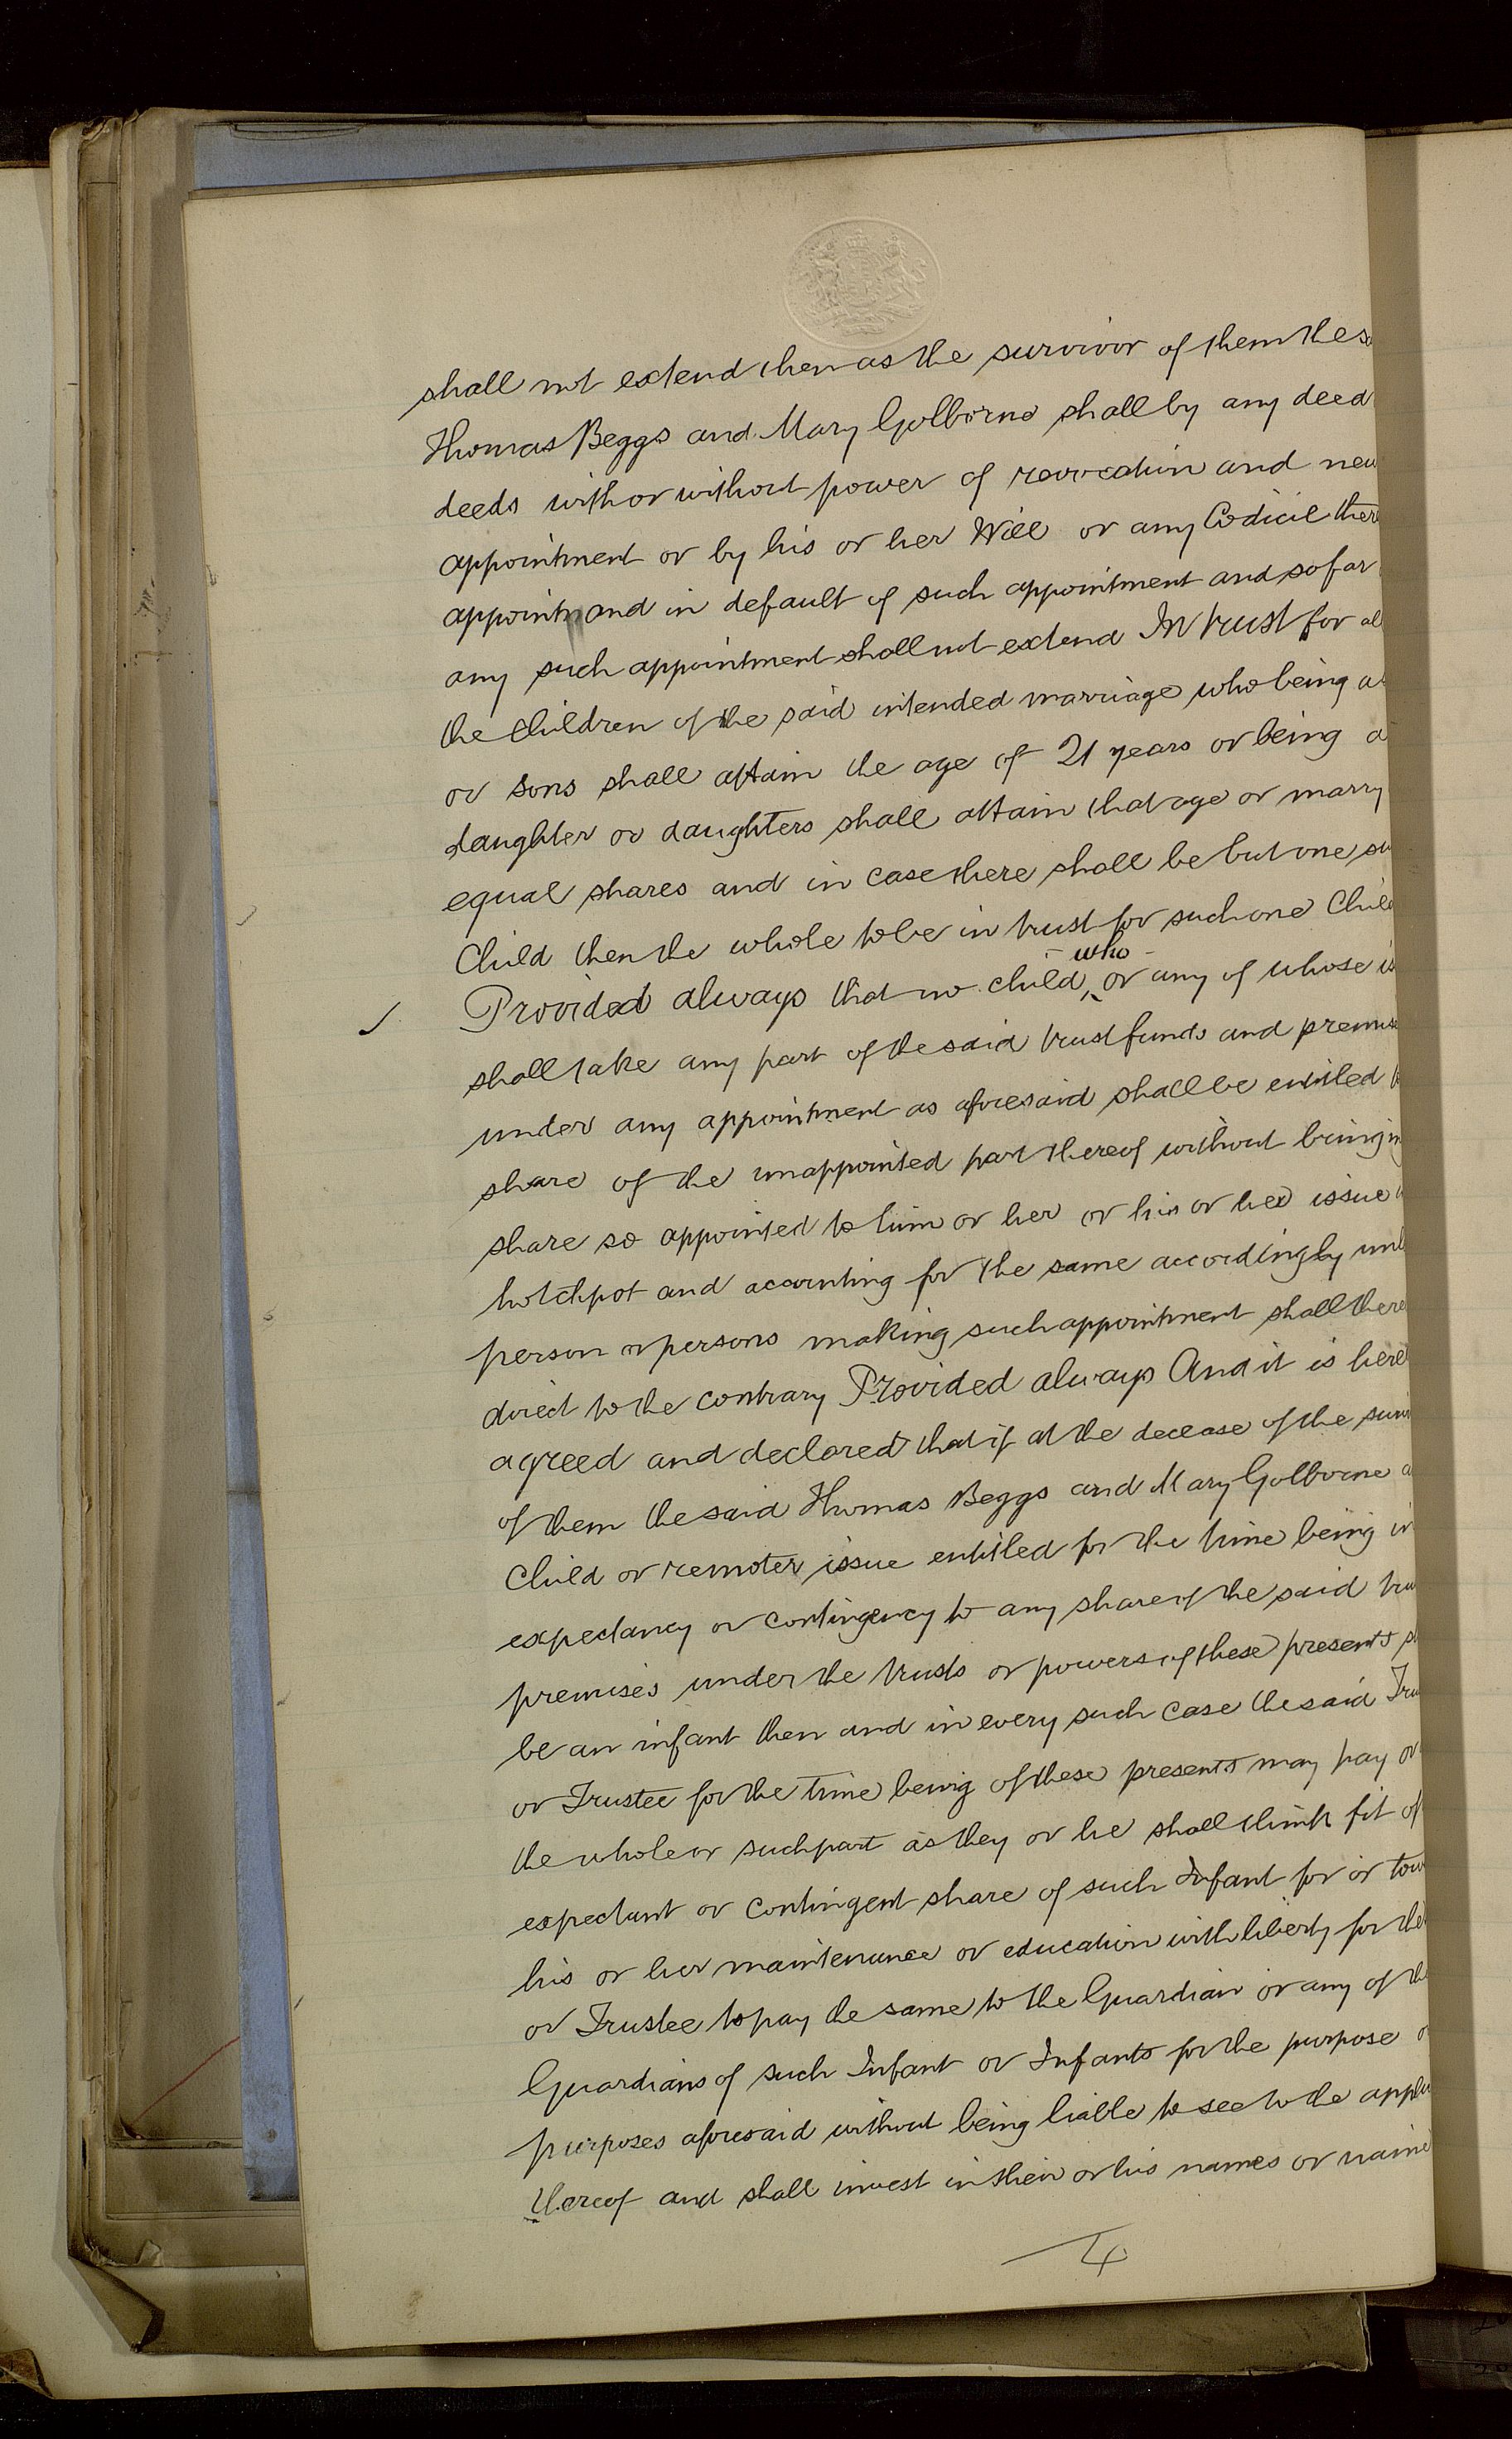 shall not extend then as the survivor of them the s
Thomas Beggs and Mary Golborne shall by any deed
deeds with or without power of revocation and new
appointment or by his or her Will or any Codicil there
appoint and in default of such appointment and so far
any such appointment shall not extend In trust for al
the Children of the said intended marriage who being a
or sons shall attain the age of 21 years or being a
daughter or daughters shall attain that age or marry
equal shares and in case there shall be but one su
Child then the whole to be in trust for such one Child
who
Provided always that no child, or any of whose is
shall take any part of the said trust funds and premise
under any appointment as aforesaid shall be entitled t
share of the unappointed part thereof without bringing
share so appointed to him or her or his or her issue
hotchpot and accounting for the same accordingly unl
person or persons making such appointment shall there
direct to the contrary Provided always And it is here
agreed and declared that if at the decease of the surv
of them the said Thomas Beggs and Mary Golborne a
Child or remoter issue entitled for the time being in
expectancy or contingency to any share of the said tru
premises under the trusts or powers of these presents s
be an infant then and in every such case the said Tru
or Trustee for the time being of these presents may pay or
the whole or such part as they or he shall think fit of
expectant or contingent share of such Infant for or tow
his or her maintenance or education with liberty for the
or Trustee to pay the same to the Guardian or any of the
Guardians of such Infant or Infants for the purpose o
purposes aforesaid without being liable to see to the appli
thereof and shall invest in their or his names or name